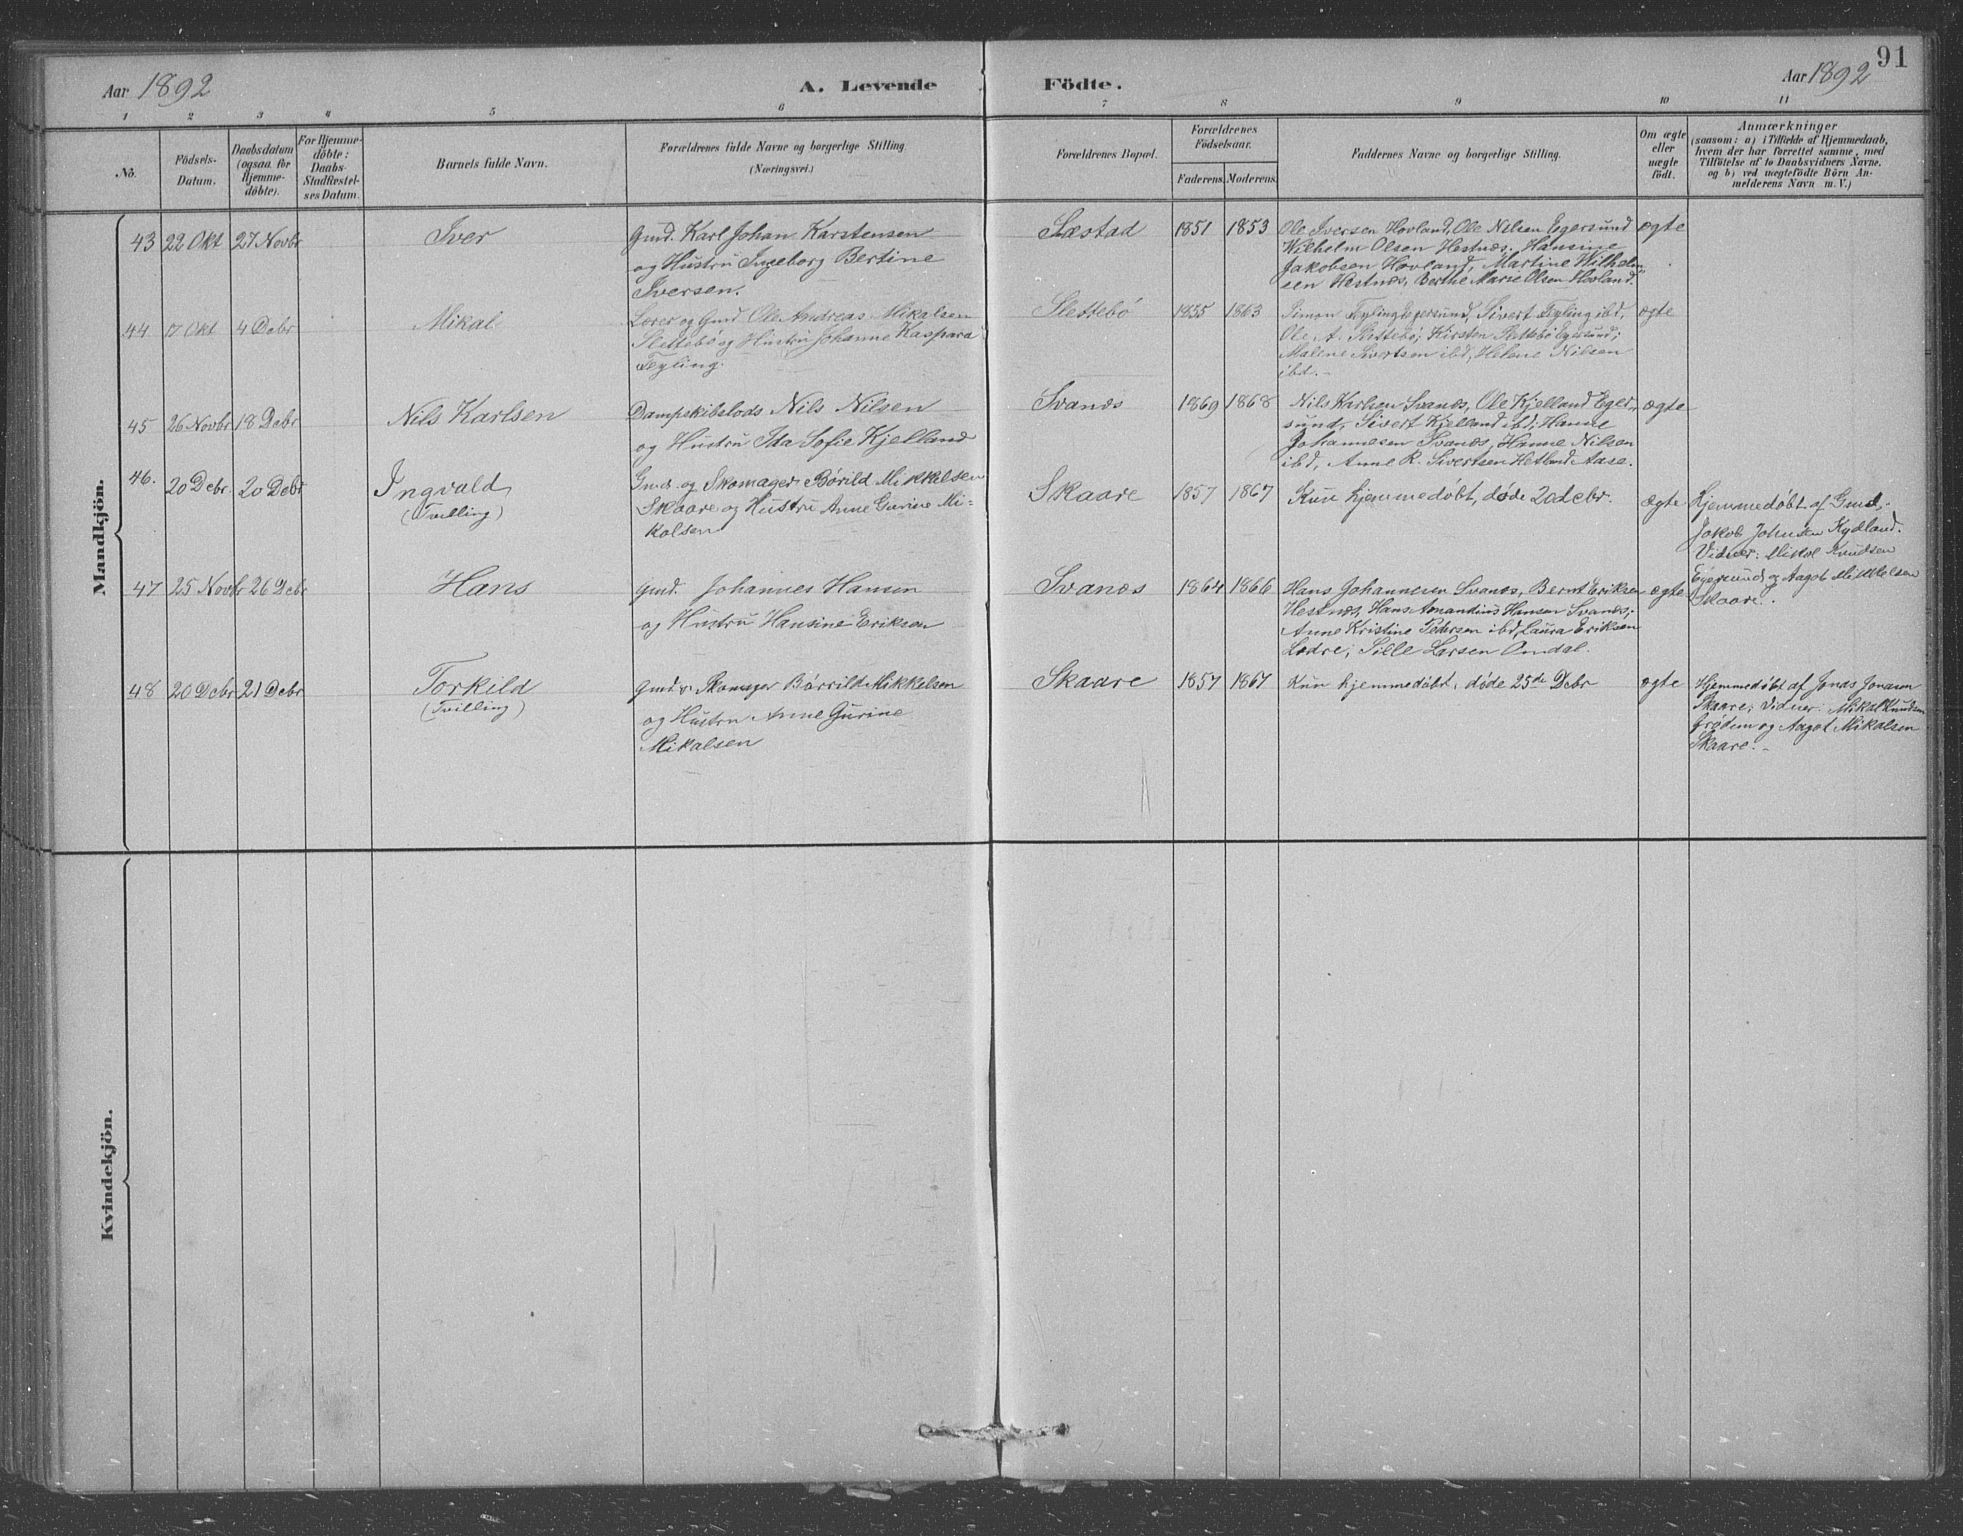 91
Aar 1892
A. Levende Födte.
Aar 1892
1 2 3 4 5 6 7 8 9 10 11
No.
Födsels-
Datum.
Daabsdatum
(ogsaa for
Hjemme-
döbte).
For Hjemme-
döbte:
Daabs-
Stadfæstel-
ses Datum.
Barnets fulde Navn.
Forældrenes fulde Navne og borgerlige Stilling.
(Næringsvei.)
Forældrenes Bopæl.
Forældrenes
Födselsaar.
Faderens. Moderens.
Faddernes Navne og borgerlige Stilling.
Om ægte
eller
uægte
födt.
Anmærkninger
(saasom: a) i Tilfælde af Hjemmedaab,
hvem der har forrettet samme, med
Tilföielse af to Daabsvidners Navne,
og b) ved uægtefödte Börn An-
melderens Navn m. V.)
Mandkjön.
43 22 Okt 27 Novbr Iver
Gmd. Karl Johan Karstensen
og Hustru Ingeborg Bertine
Iversen.
Sæstad 1851 1853
Ole Iversen Hovland, Ole Nilsen Egersund
Wilhelm Olsen Hestnes, Hansine
Jakobsen Hovland, Martine Wilhelm-
sen Hestnæs, Berthe Marie Olsen Hovland.
ægte
44 17 Okt 4 Debr Mikal
Lærer og Gmd Ole Andreas Mikalsen
Slettebø og Hustru Johanne Kaspara
Tegling.
Slettebö 1855 1863
Simon Tegling Egersund, Sivert Tegling ibd,
Ole A. Slettebø, Kirsten Slettebø Egersund;
Malene Sivertsen ibd, Helene Nilsen
ibd.-
ægte
45 26 Novbr 18 Debr Nils Karlsen
Dampskibslods Nils Nilsen
og Hustru Ida Sofie Kjelland
Svanæs 1869 1868
Nils Karlsen Svanæs, Ole Kjelland Eger-
sund, Sivert Kjelland ibd; Hanne
Johannesen Svanæs, Hanne Nilsen
ibd, Anne R. Sivertsen Hetland Aase.
ægte
46. 20 Debr. 20 Debr Ingvald
(Tvilling)
Gmd. og Skomager Børild Mikkelsen
Skaare og Hustru Anne Gurine Mi-
kalsen
Skaare 1857 1867
Kun hjemmedøbt, døde 20 Debr.
ægte
Hjemmedøbt af Gmd.
Jakob Johnsen Kydland.
Vidner: Mikal Knudsen
Egersund og Aagot Mikkelsen
Skaare.
47 25 Novbr 26 Debr Hans
Gmd. Johannes Hansen
og Hustru Hansine Eriksen
Svanæs 1864 1866
Hans Johannesen Svanæs, Bernt Eriksen
Hestnes, Hans Amandius Hansen Svanæs;
Anne Kristine Pedersen ibd, Laura Eriksen
Lædre, Sille Larsen Omdal.
ægte
48 20 Debr 21 Debr Torkild
(Tvilling)
Gmd. Skomager Børrild Mikkelsen
og Hustru Anne Gurine
Mikalsen
Skaare 1857 1867
Kun hjemmedøbt, døde 25de Debr
ægte
Hjemmedøbt af Jonas Jonasen
Skaare; Vidner: Mikal Knudsen
Grødem og Aagot Mikalsen
Skaare.-
Kvindekjön.